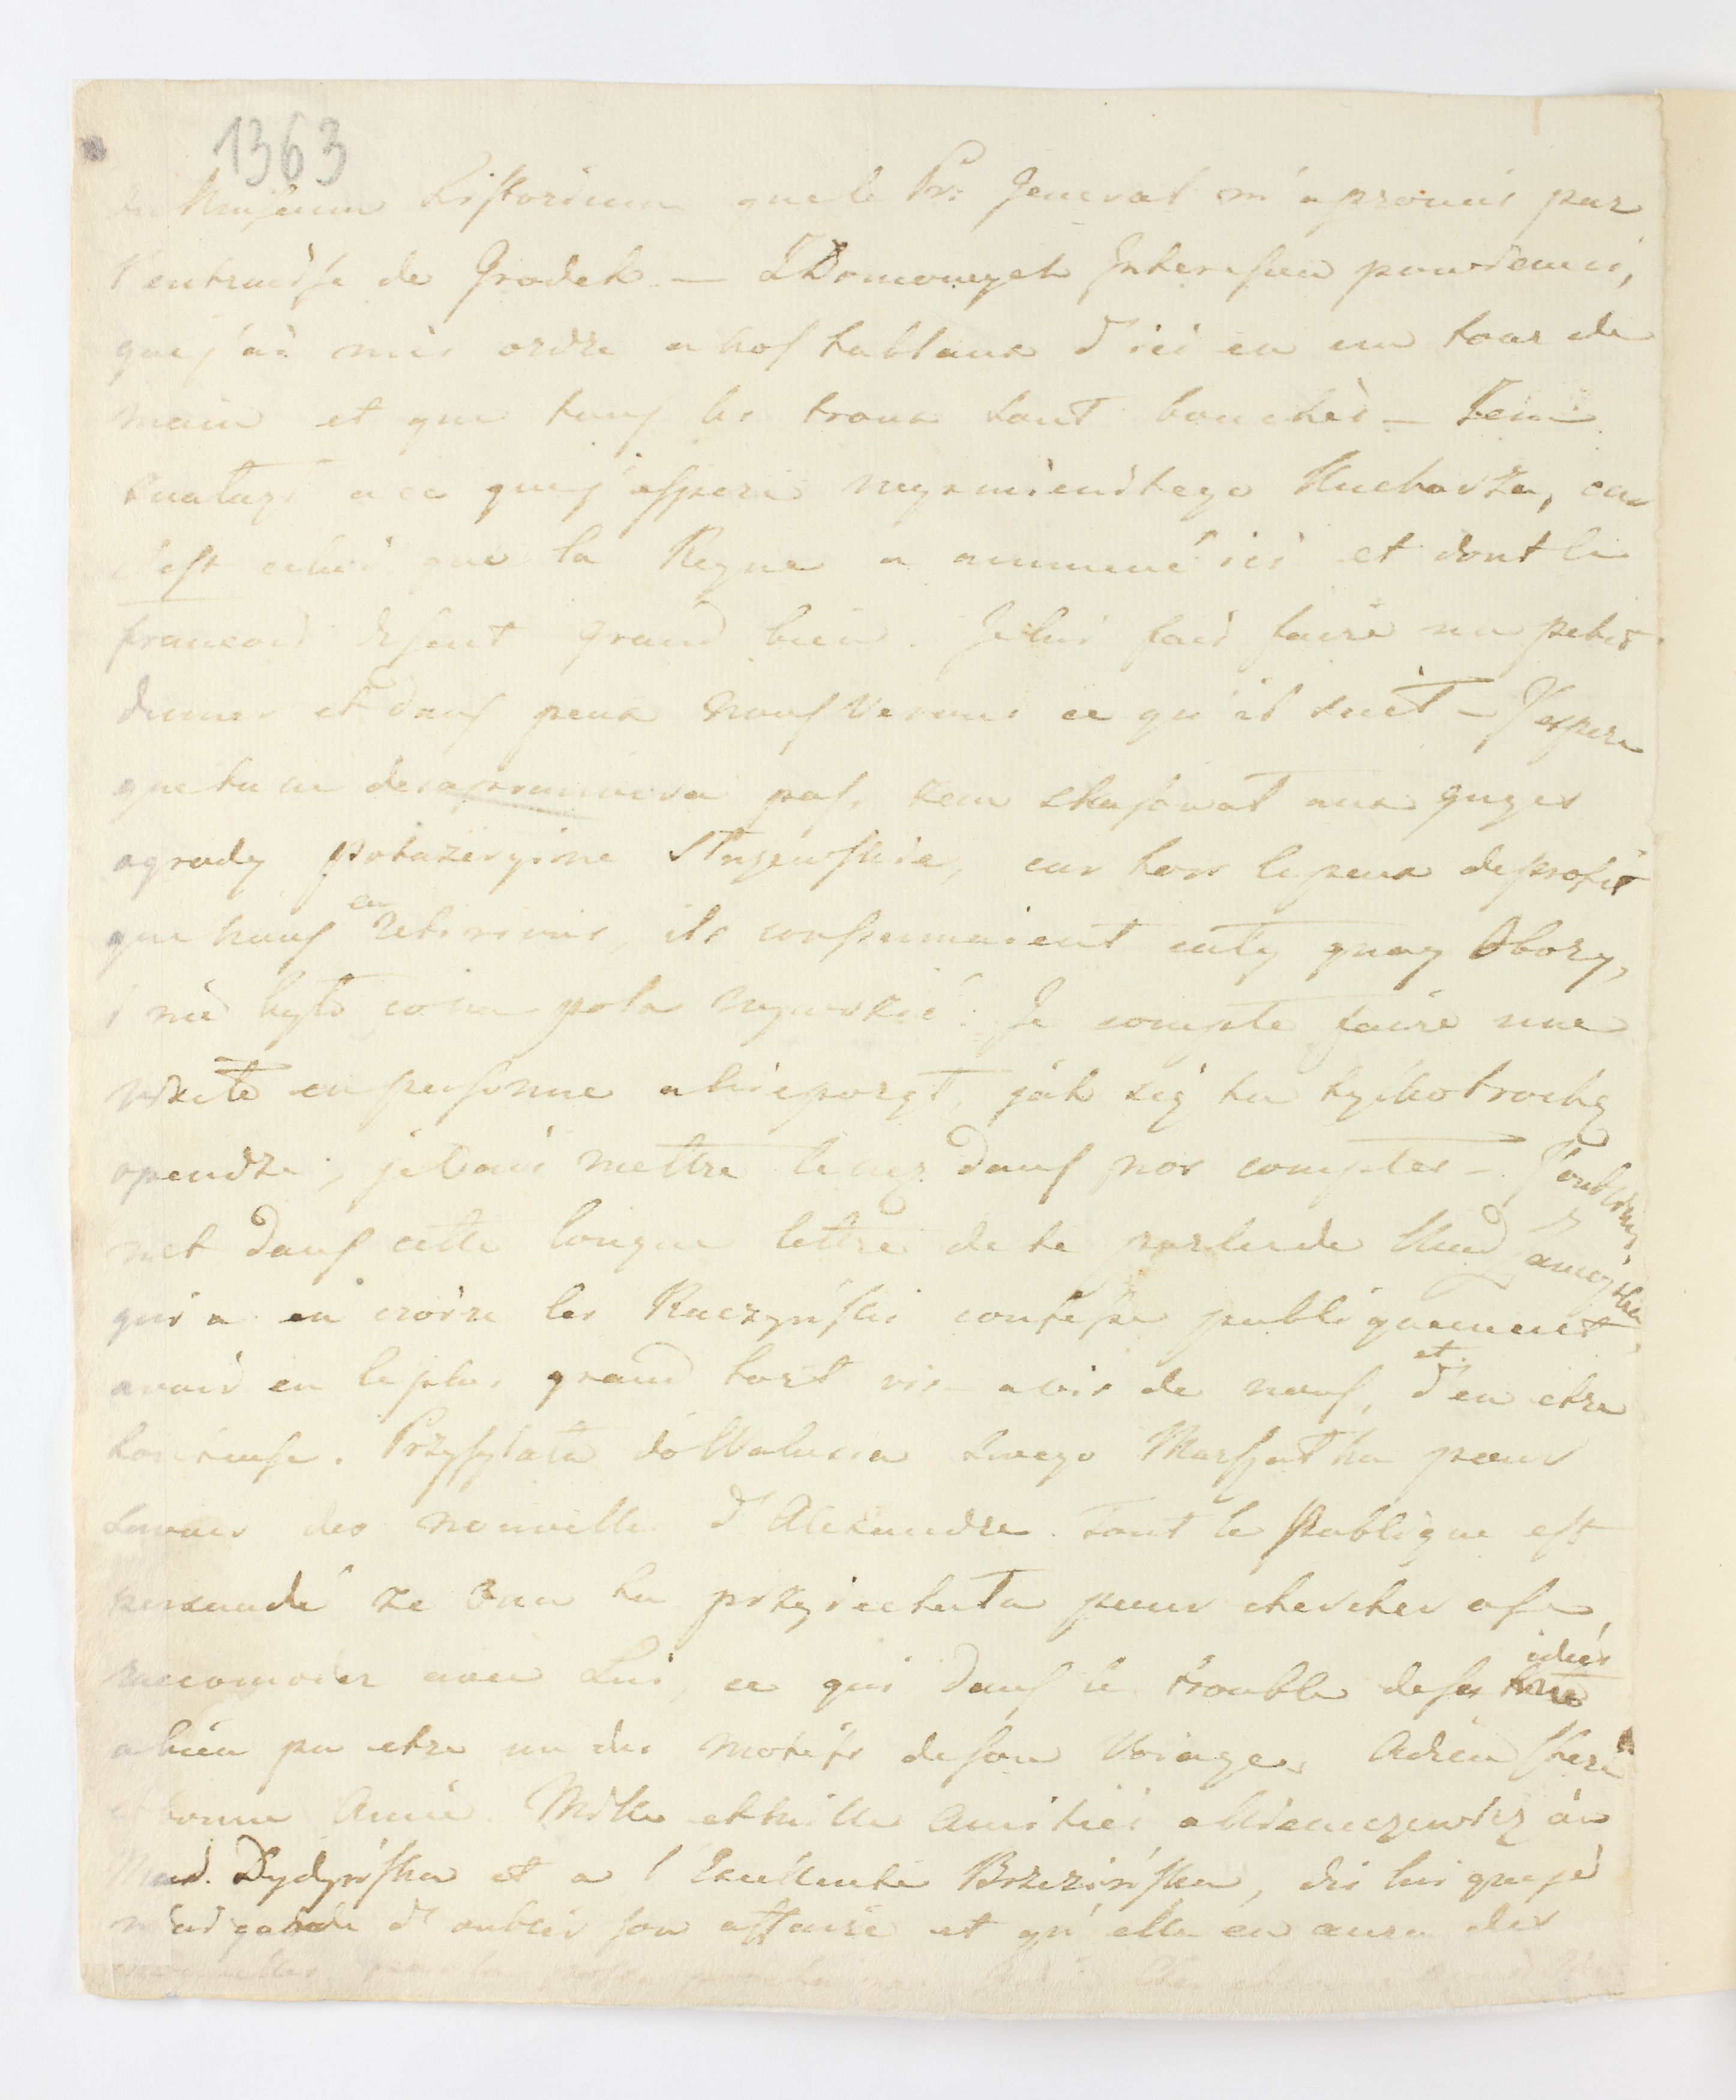 1363
du Musæum historicum que le Pr: General m'a promis par
l'entremise de Grodek — Z Domowych Interesow powiem ci,
que j'ai mis ordre a nos tableaux d'ici en un tour de
main et que tous les trous sont bouchès —
a ce que j'esperes wysmienitego Kucharza, car
c'est celui que la Reyne a ammené ici et dont les
francois disent grand bien. Je lui fais faire un petit
diner et dans peux nous verons ce qu'il sait — J'espere
que tu ne desaprouvera pas, zem skasował aux gages
ogrody Stryiowskie, car hors le peux de profit
que nous en retirions, ils consumaient caly gnoy Obory,
i nie bylo co na pola wywozić. Je compte faire une
visite en personne a Nieporęt, jak się tu tylko trochę
opendze, je vais mettre le nez dans nos comptes — J'oubliais
net dans cette longue lettre de te parler de Mad Zamoyska
qui a en croire les Raczynski confesse publiquement,
avoir eu le plus grand tort vis-a vis de nous, et d'en etre
honteuse. Przysylała do Walusia swego Marszałka pour
savoir des nouvelle d'Alexandre. Tout le Publique est
persuadé ze Ona tu przyiechała pour chercher a se
raccomoder avec Lui, ce qui dans le trouble de ses idées
a bien pu etre un des motifs de son Voiage. Adieu chere
et bonne Amie. Mille et mille Amitiés a Niemcewicz à
Mad. Dydynska et a l'Exellente Brzezinska, dis lui que je
n'ai garde d'oublier son affaire et qu'elle en aura des